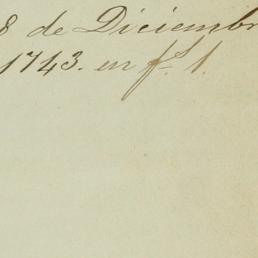 8 de Diciembr
1743. en fs. 1.